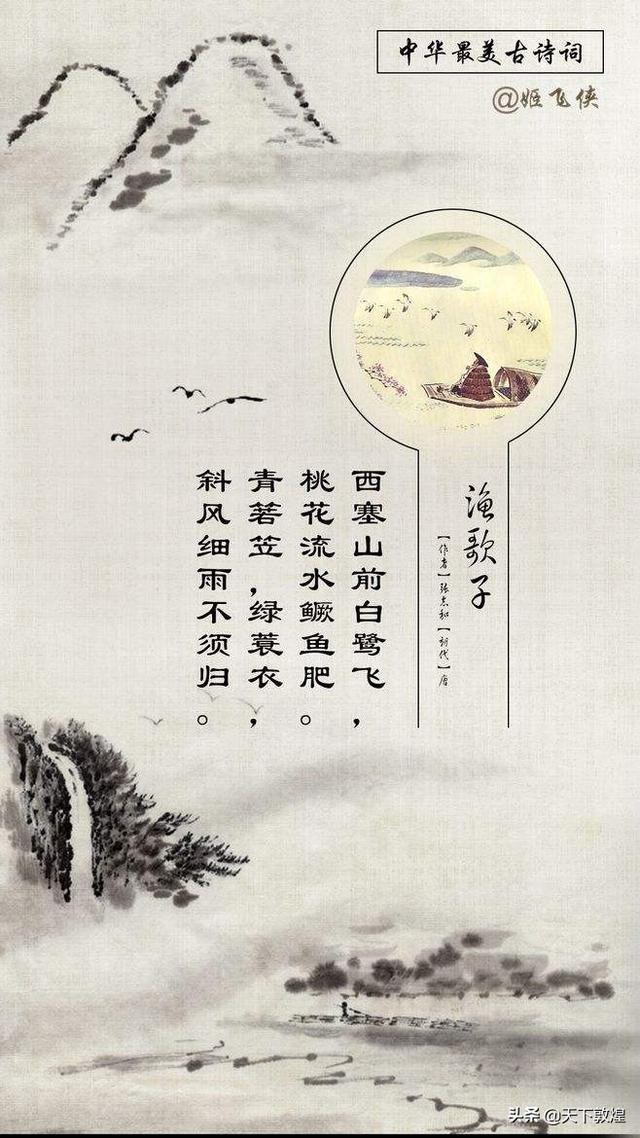 中华最美古诗词
@姬飞侠
渔歌子
【作者】张志和【朝代】唐
西塞山前白鹭飞，
桃花流水鳜鱼肥。
青箬笠，绿蓑衣，
斜风细雨不须归。
头条 @天下敦煌